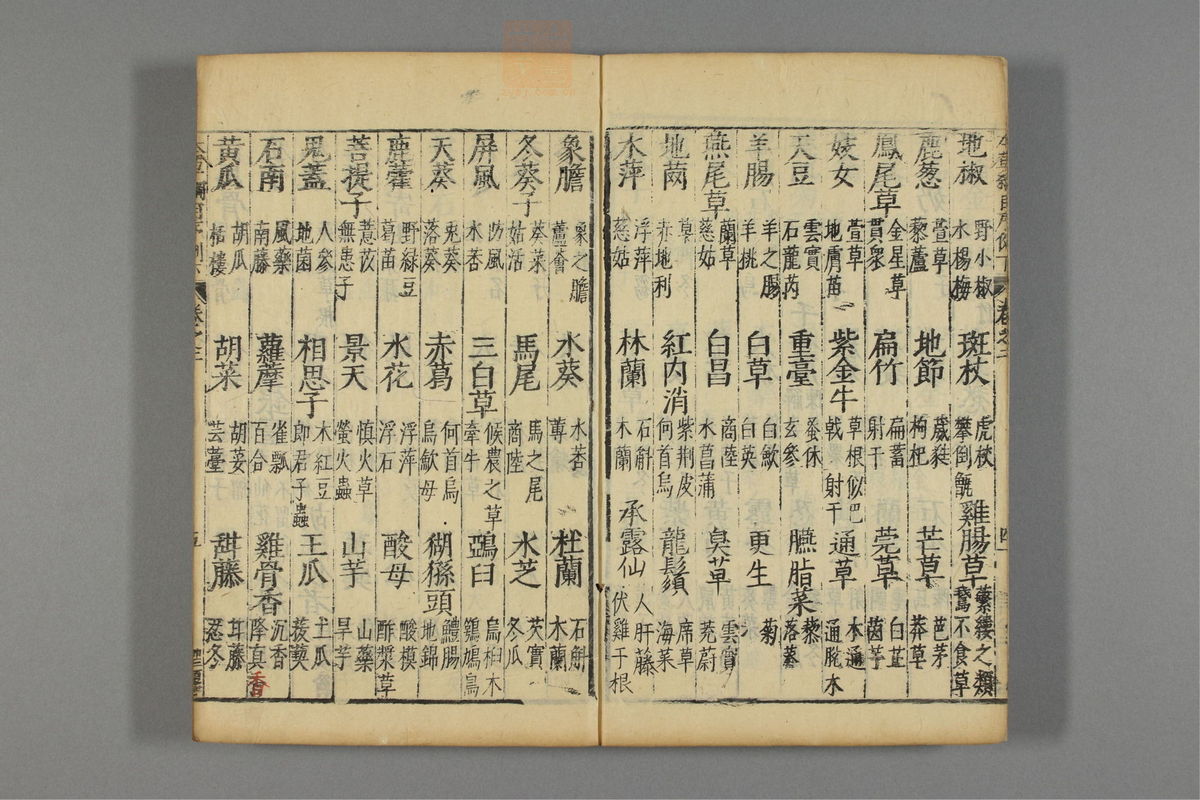 地椒 野小椒 水楊梅 斑杖 虎杖 攀倒甑 雞腸草 蘩縷之類 鵝不食草
鹿葱 萱草 藜蘆 地節 葳蕤 枸杞 芒草 芭茅 莽草
鳳尾草 金星草 貫衆 扁竹 扁蓄 射干 莞草 白芷 茵芋
妓女 萱草 地膚苗 紫金牛 草根似巴戟 射干 通草 木通 通脫木
天豆 雲實 石龍芮 重臺 蚤休 玄參 臙脂菜 藜 落葵
羊腸 羊之腸 羊桃 白草 白蘞 白英 更生 菊
燕尾草 蘭草 慈姑 白昌 商陸 水菖蒲 臭草 雲實 茺蔚
赤地利 紅內消 紫荊皮 何首烏 龍鬚 席草 海菜
水萍 浮萍 慈姑 林蘭 石斛 木蘭 承露仙 人肝藤 伏雞子根
象膽 象之膽 蘆薈 水葵 水莕 蓴 杜蘭 石斛 木蘭
冬葵子 葵菜 姑活 馬尾 馬之尾 商陸 水芝 芡實 冬瓜
屏風 防風 水莕 三白草 候農之草 牽牛 鵶臼 烏桕木 鴾鳩鳥
天葵 兎葵 落葵 赤葛 何首烏 烏蘞母 猢猻頭 鱧腸 地錦
鹿藿 野綠豆 葛苗 水花 浮萍 浮石 酸母 酸模 酢漿草
菩提子 薏苡 無患子 景天 慎火草 螢火蟲 山芋 山藥 旱芋
鬼蓋 人參 地菌 相思子 木紅豆 郎君子蟲 王瓜 土瓜 菝葜
石南 風藥 南藤 蘿藦 雀瓢 百合 雞骨香 沉香 降真香
黃瓜 胡瓜 栝樓 胡菜 胡荽 芸薹 甜藤 耳藤 忍冬